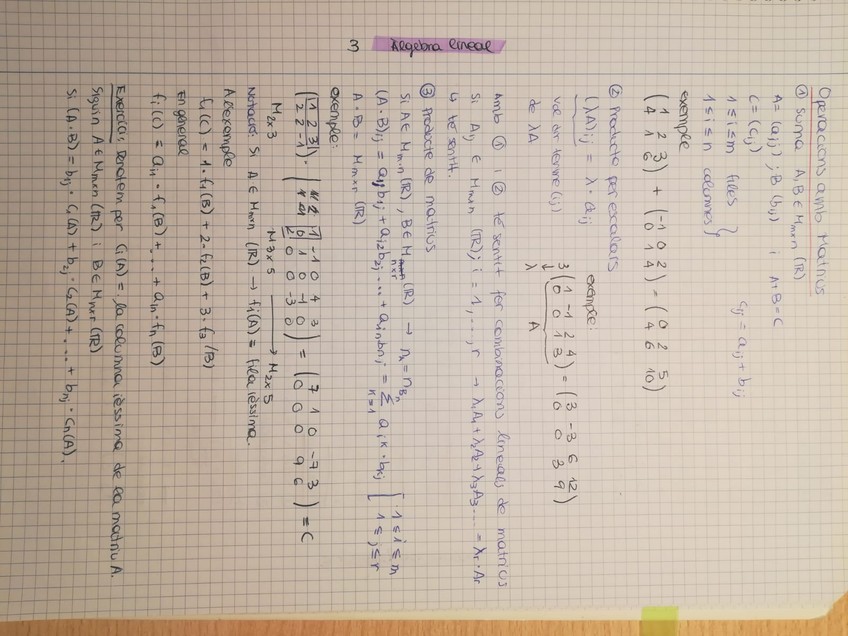 3 Àlgebra lineal
Operacions amb Matrius
① Suma A, B ∈ Mmxn (ℝ)
A = (aij) ; B (bij) i A+B = C
C = (cij) cij = aij + bij
1 ≤ i ≤ m files
1 ≤ i ≤ n columnes }
exemple
( 1 2 3 ) + ( -1 0 2 ) = ( 0 2 5 )
( 4 1 6 ) ( 0 1 4 ) ( 4 6 10 )
② Producte per escalars
(λA)ij = λ · aij
exemple:
vol dir terme (ij)
de λA
3 ( 1 -1 2 4 ) = ( 3 -3 6 12 )
( 0 0 1 3 ) ( 0 0 3 9 )
λ A
Amb ① i ② té sentit fer combinacions lineals de matrius
Si Aij ∈ Mmxn (ℝ); i = 1, ..., r → λ1A1 + λ2A2 + λ3A3 ... = λr · Ar
↳ té sentit.
③ Producte de matrius
Si A ∈ Mm.n (ℝ), B ∈ Mnxr (ℝ) → nA = nBn
(A·B)ij = aij b1j + ai2 b2j ... + ain bnj = Σ k=1 aik · bkj [ 1 ≤ i ≤ m
1 ≤ j ≤ r
A · B = Mmxr (ℝ)
exemple:
( 1 2 3 ) · ( 1 -1 0 4 3 ) = ( 7 1 0 -7 3 ) = C
( 2 2 -1 ) ( 0 1 0 -1 0 ) ( 0 0 0 9 6 )
( 2 0 0 -3 0 )
M2x3 M3x5 → M2x5
Notació: Si A ∈ Mmxn (ℝ) → fi(A) = fila ièssima.
A l'exemple
f1(C) = 1 · f1(B) + 2 · f2(B) + 3 · f3(B)
En general
fi(C) = ai1 · f1(B) + ... + ain · fn(B)
Exercici: Denotem per Ci(A) = la columna ièssima de la matriu A.
Siguin A ∈ Mmxn (ℝ) i B ∈ Mnxr (ℝ)
Si (A·B) = b1j · C1(A) + b2j · C2(A) + ... + bnj · Cn(A).